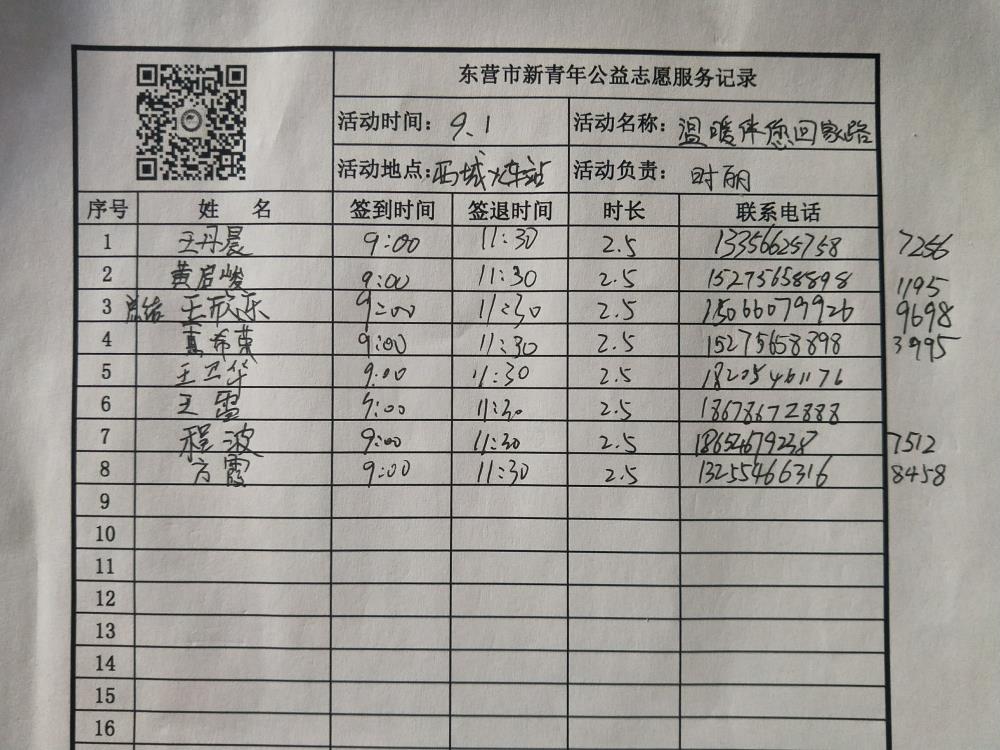 东营市新青年公益志愿服务记录
活动时间: 9.1 活动名称: 温暖伴您回家路
活动地点: 西城火车站 活动负责: 时丽
序号 姓 名 签到时间 签退时间 时长 联系电话
1 王丹晨 9:00 11:30 2.5 13356625758 7256
2 黄启峻 9:00 11:30 2.5 15275658898 1195
3 总结 王欣乐 9:00 11:30 2.5 15066079926 9698
4 9:00 11:30 2.5 15275658898 3995
5 王卫华 9:00 11:30 2.5 18205461176
6 王雷 9:00 11:30 2.5 18678672888
7 程波 9:00 11:30 2.5 18654679238 7512
8 方霞 9:00 11:30 2.5 13255466316 8458
9
10
11
12
13
14
15
16